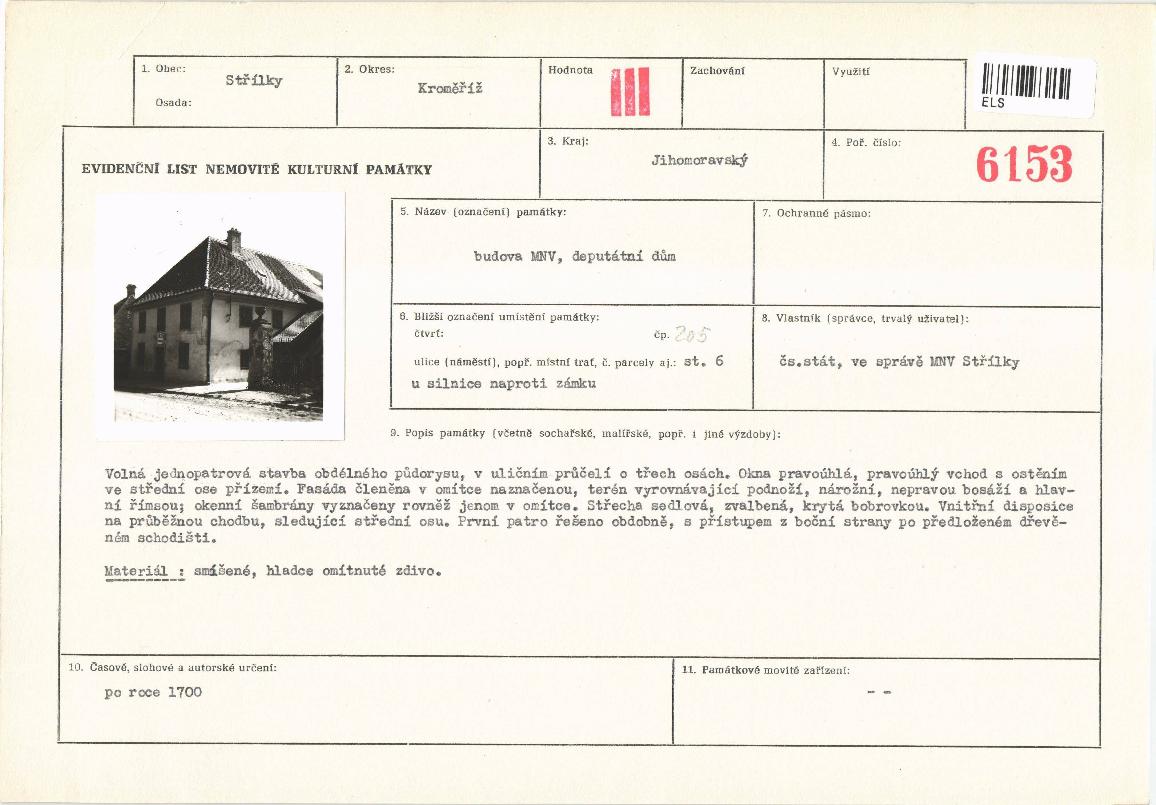 1. Obec:
Střílky
Osada:
2. Okres:
Kroměříž
Hodnota
III
Zachování
Využití
ELS
EVIDENČNÍ LIST NEMOVITÉ KULTURNÍ PAMÁTKY
3. Kraj:
Jihomoravský
4. Poř. číslo:
6153
5. Název (označení) památky:
budova MNV, deputátní dům
7. Ochranné pásmo:
6. Bližší označení umístění památky:
čtvrť: čp. 205
ulice (náměstí), popř. místní trať, č. parcely aj.: st. 6
u silnice naproti zámku
8. Vlastník (správce, trvalý uživatel):
čs.stát, ve správě MNV Střílky
9. Popis památky (včetně sochařské, malířské, popř. i jiné výzdoby):
Volná jednopatrová stavba obdélného půdorysu, v uličním průčelí o třech osách. Okna pravoúhlá, pravoúhlý vchod s ostěním
ve střední ose přízemí. Fasáda členěna v omítce naznačenou, terén vyrovnávající podnoží, nárožní, nepravou bosáží a hlav-
ní římsou; okenní šambrány vyznačeny rovněž jenom v omítce. Střecha sedlová, zvalbená, krytá bobrovkou. Vnitřní disposice
na průběžnou chodbu, sledující střední osu. První patro řešeno obdobně, s přístupem z boční strany po předloženém dřevě-
ném schodišti.
Materiál : smíšené, hladce omítnuté zdivo.
10. Časové, slohové a autorské určení:
po roce 1700
11. Památkové movité zařízení:
- -